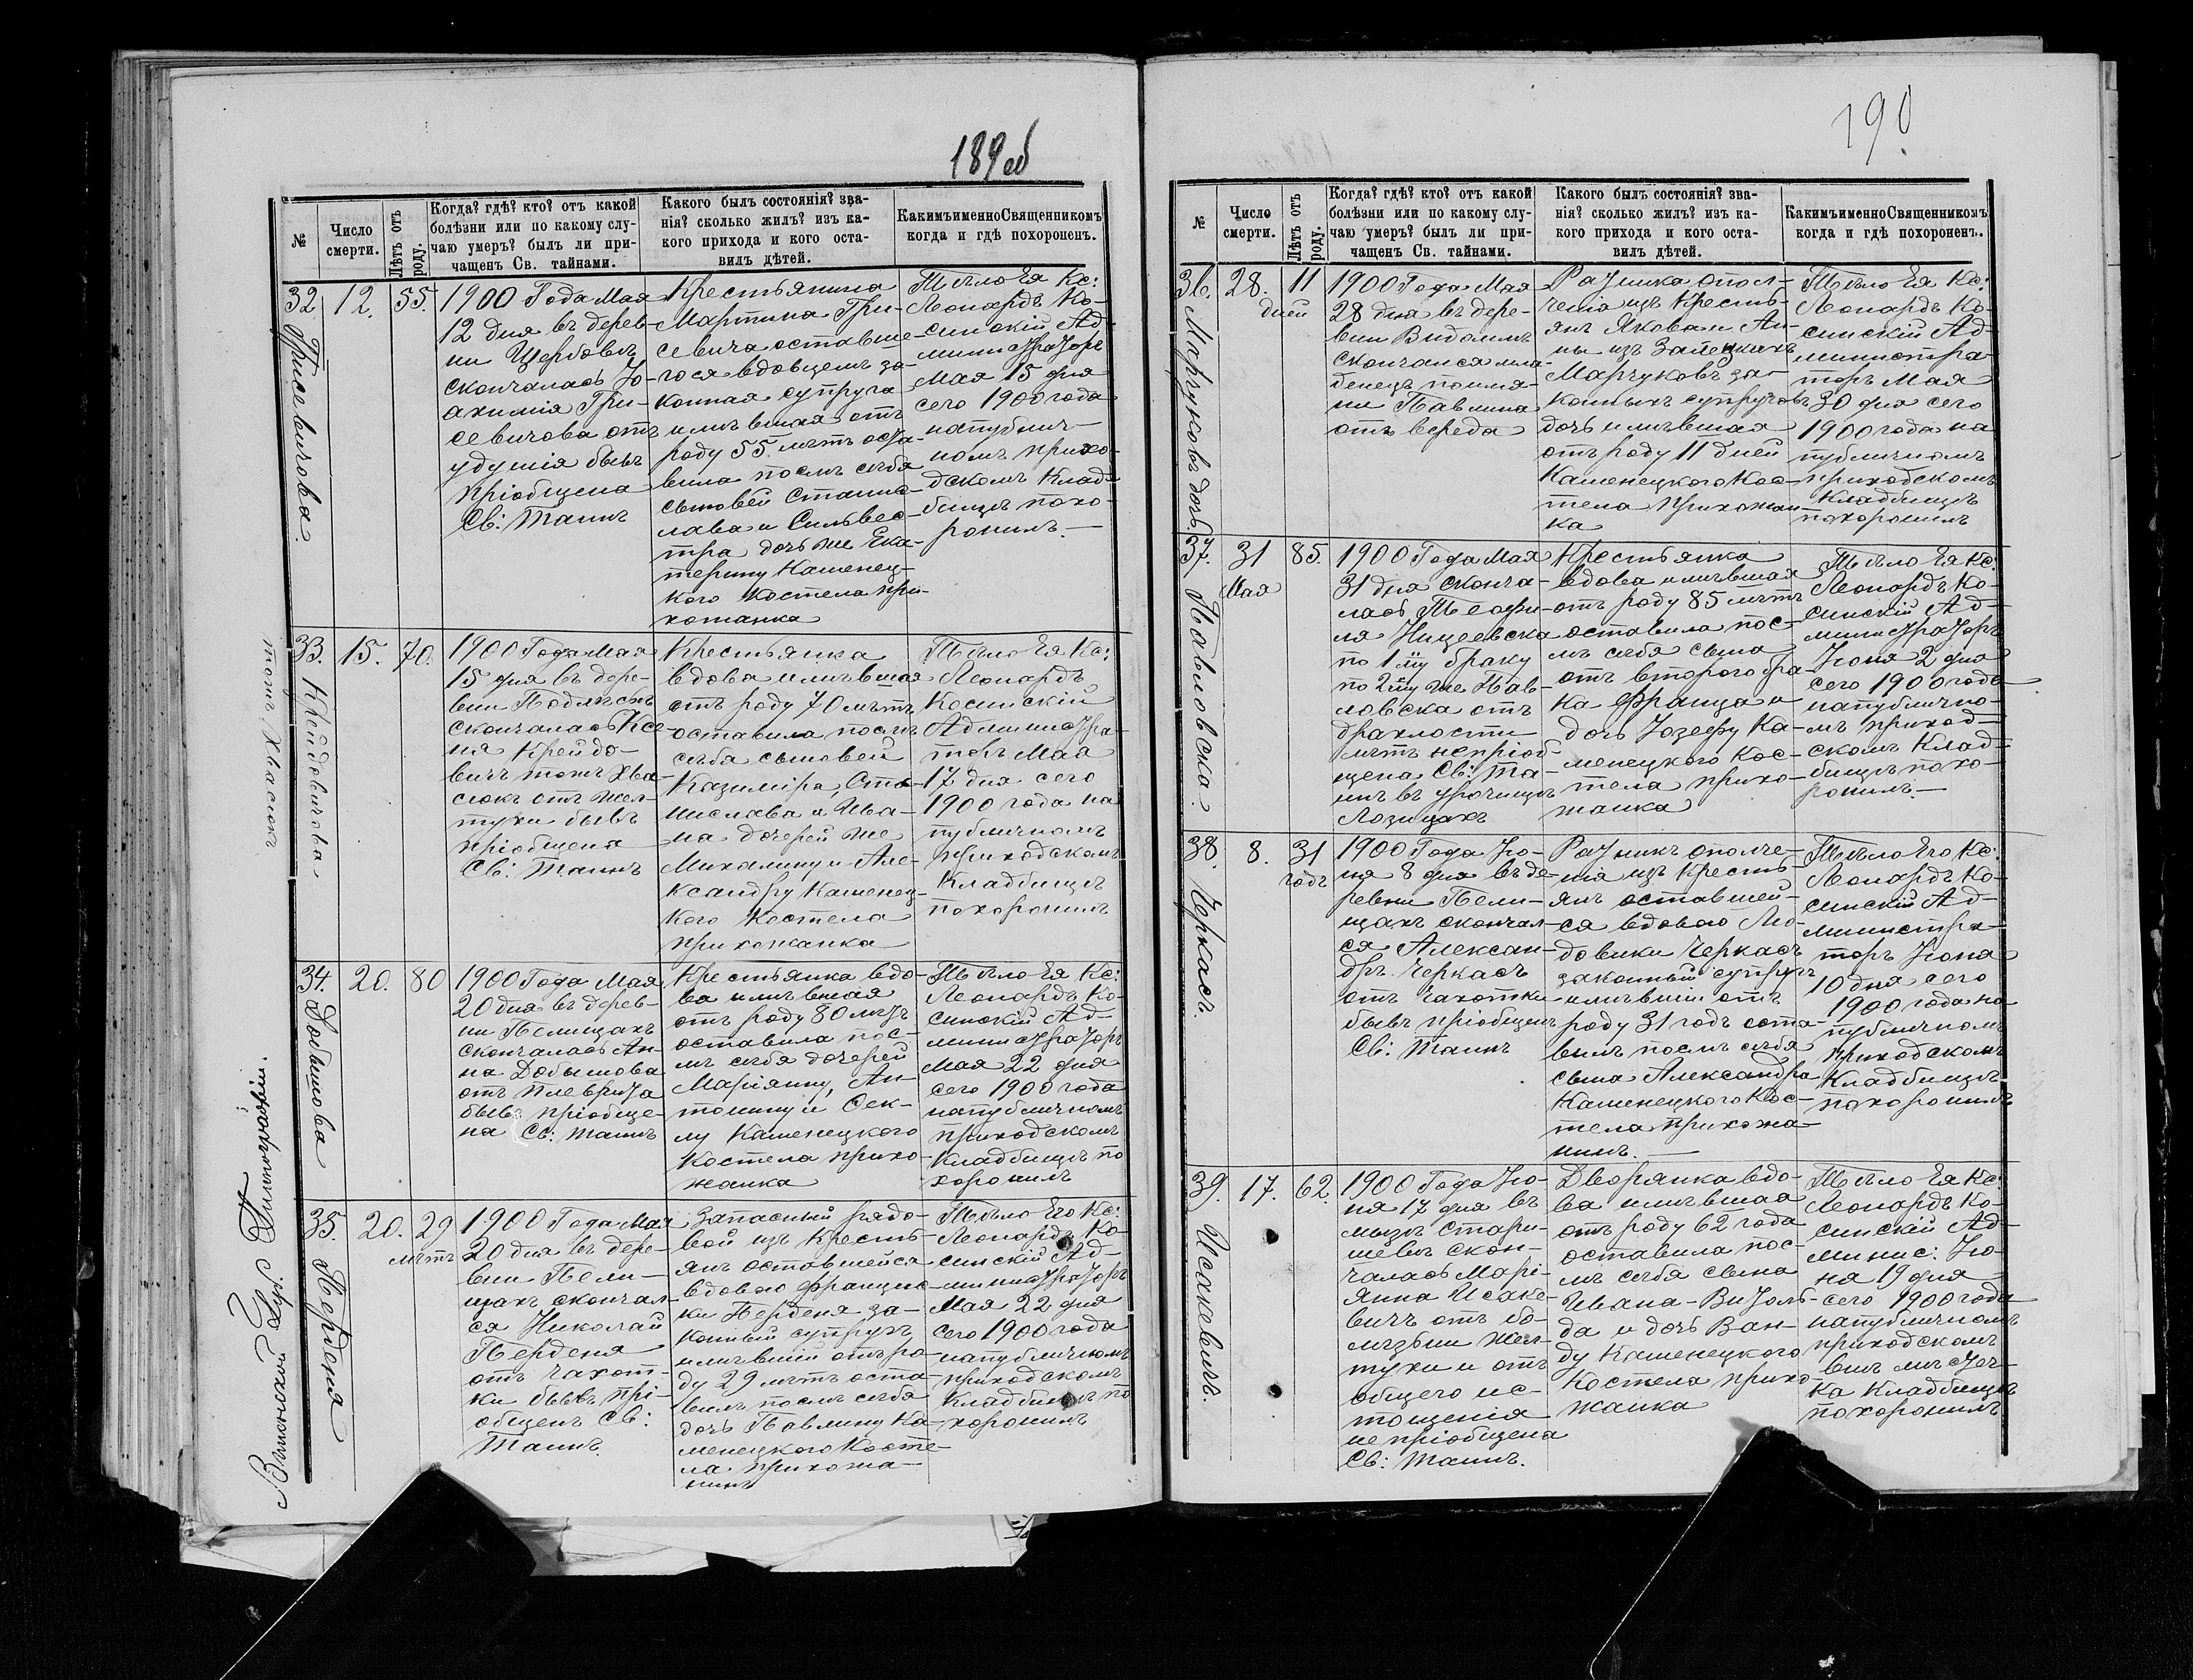 189 об
№
Число смерти.
Лѣтъ отъ роду.
Когда? гдѣ? кто? отъ какой
болѣзни или по какому слу-
чаю умеръ? былъ ли при-
чащенъ Св. тайнами.
Какого былъ состоянія? зва-
нія? сколько жилъ? изъ ка-
кого прихода и кого оста-
вилъ дѣтей.
Какимъ именно Священникомъ
когда и гдѣ похороненъ.
32
Грисевичова.
12.
55.
1900 Года Мая
12 дня въ дерев-
ни Щербовѣ
скончалась Іо-
ахимія Гри-
севичова отъ
удушія бывъ
пріобщена
Св: Таинъ
Крестьянина
Мартина Гри-
севича оставше-
гося вдовцемъ за-
конная супруга
имѣвшая отъ
роду 55 лѣтъ оста-
вила послѣ себя
сыновей Станис-
лава и Сильвес-
тра дочь же Ека-
терину Каменец-
кого Костела при-
хожанка
Тѣло Ея Кс:
Леонардъ Ко-
синскій Ад-
министраторъ
Мая 15 дня
сего 1900 года
на публич-
номъ прихо-
дскомъ Клад-
бищѣ похо-
ронилъ.
33.
Крейдовичова
тожъ Хвасюкъ
15.
70.
1900 Года Мая
15 дня въ дере-
вни Подлѣсьѣ
скончалась Ксе-
ня Крейдо-
вичъ тожъ Хва-
сюкъ отъ жел-
тухи бывъ
пріобщена
Св: Таинъ
Крестьянка
вдова имѣвшая
отъ роду 70 лѣтъ
оставила послѣ
себя сыновей
Казиміра, Ста-
нислава и Ива-
на дочерей же
Михалину и Але-
ксандру Каменец-
кого Костела
прихожанка
Тѣло Ея Кс:
Леонардъ
Косинскій
Администра-
торъ Мая
17 дня сего
1900 года на
публичномъ
приходскомъ
Кладбищѣ
похоронилъ
34.
Добышова
20.
80
1900 Года Мая
20 дня въ дерев-
ни Пелищахъ
скончалась Ан-
на Добышова
отъ плеврита
бывъ пріобще-
на Св: Таинъ
Крестьянка вдо-
ва имѣвшая
отъ роду 80 лѣтъ
оставила пос-
лѣ себя дочерей
Маріянну, Ан-
тонину и Фек-
лу Каменецкого
Костела прихо-
жанка
Тѣло Ея Кс:
Леонардъ Ко-
синскій Ад-
министраторъ
Мая 22 дня
сего 1900 года
на публичномъ
приходскомъ
Кладбищѣ по
хоронилъ
35.
Перденя
20.
29
лѣтъ
1900 Года Мая
20 дня въ дере-
вни Пели-
щахъ скончал-
ся Николай
Перденя
отъ чахот-
ки бывъ прі-
общенъ Св:
Таинъ.
Запасный рядо-
вой изъ кресть-
янъ оставшейся
вдовою Францис-
ки Перденя за-
конный супругъ
имѣвшій отъ ро-
ду 29 лѣтъ оста-
вилъ послѣ себя
дочь Павлину Ка-
менецкого Косте-
ла прихожа-
нинъ
Тѣло Его Кс:
Леонардъ Ко-
синскій Ад-
министраторъ
Мая 22 дня
сего 1900 года
на публичномъ
приходскомъ
Кладбищѣ по
хоронилъ
190
№
Число смерти.
Лѣтъ отъ роду.
Когда? гдѣ? кто? отъ какой
болѣзни или по какому слу-
чаю умеръ? былъ ли при-
чащенъ Св. тайнами.
Какого былъ состоянія? зва-
нія? сколько жилъ? изъ ка-
кого прихода и кого оста-
вилъ дѣтей.
Какимъ именно Священникомъ
когда и гдѣ похороненъ.
36.
Марчуковъ дочь.
28.
11
дней
1900 Года Мая
28 дня въ дере-
вни Видомлѣ
скончался мла-
денецъ по имя-
ни Павлина
отъ вереда
Ратника Опол-
ченія изъ кресть-
янъ Якова и Ан-
ны изъ Заяцкихъ
Марчуковъ за-
конныхъ супруговъ
дочь имѣвшая
отъ роду 11 дней
Каменецкого Кос-
тела прихожан-
ка
Тѣло Ея Кс:
Леонардъ Ко-
синскій Ад-
министра-
торъ Мая
30 дня сего
1900 года на
публичномъ
приходскомъ
Кладбищѣ
похоронилъ
37.
Павловска.
31
Мая
85.
1900 Года Мая
31 дня сконча-
лась Теофи-
ля Ницеевска
по 1му браку
по 2му же Пав-
ловска отъ
драхлости
лѣтъ непріоб-
щена Св: Та-
инъ въ урочищѣ
Лозицахъ
Крестьянка
вдова имѣвшая
отъ роду 85 лѣтъ
оставила пос-
лѣ себя сына
отъ второго бра-
ка Франца и
дочь Іозефу Ка-
менецкого Кос-
тела прихо-
жанка
Тѣло Ея Кс:
Леонардъ Ко-
синскій Ад-
министраторъ
Іюня 2 дня
сего 1900 года
на публично-
мъ приход-
скомъ Клад-
бищѣ похо-
ронилъ.
38.
Черкасъ.
8.
31
годъ
1900 Года Ію-
ня 8 дня въ де-
ревни Пели-
щахъ скончал-
ся Алексан-
дръ Черкасъ
отъ чахотки
бывъ пріобщенъ
Св: Таинъ
Ратникъ ополче-
нія изъ кресть-
янъ оставшей-
ся вдовою Лю-
довики Черкасъ
законный супругъ
имѣвшій отъ
роду 31 годъ оста-
вилъ послѣ себя
сына Александра
Каменецкого Кос-
тела прихожа-
нинъ.
Тѣло Его Кс:
Леонардъ Ко-
синскій Ад-
министра-
торъ Іюня
10 дня сего
1900 года на
публичномъ
приходскомъ
Кладбищѣ
похоронилъ
39.
Исакевичъ.
17.
62.
1900 Года Ію-
ня 17 дня въ
мызѣ Стари-
шевѣ скон-
чалась Марі-
янна Исаке-
вичъ отъ бо-
лѣзни жел-
тухи и отъ
общего ис-
тощенія
не пріобщена
Св: Таинъ.
Дворянка вдо-
ва имѣвшая
отъ роду 62 года
оставила пос-
лѣ себя сына
Ивана-Витоль-
да и дочь Ван-
ду Каменецкого
Костела прихо-
жанка
Тѣло Ея Кс:
Леонардъ Ко-
синскій Ад-
минис: Ію-
ня 19 дня
сего 1900 года
на публичномъ
приходскомъ
Кладбищѣ
похоронилъ